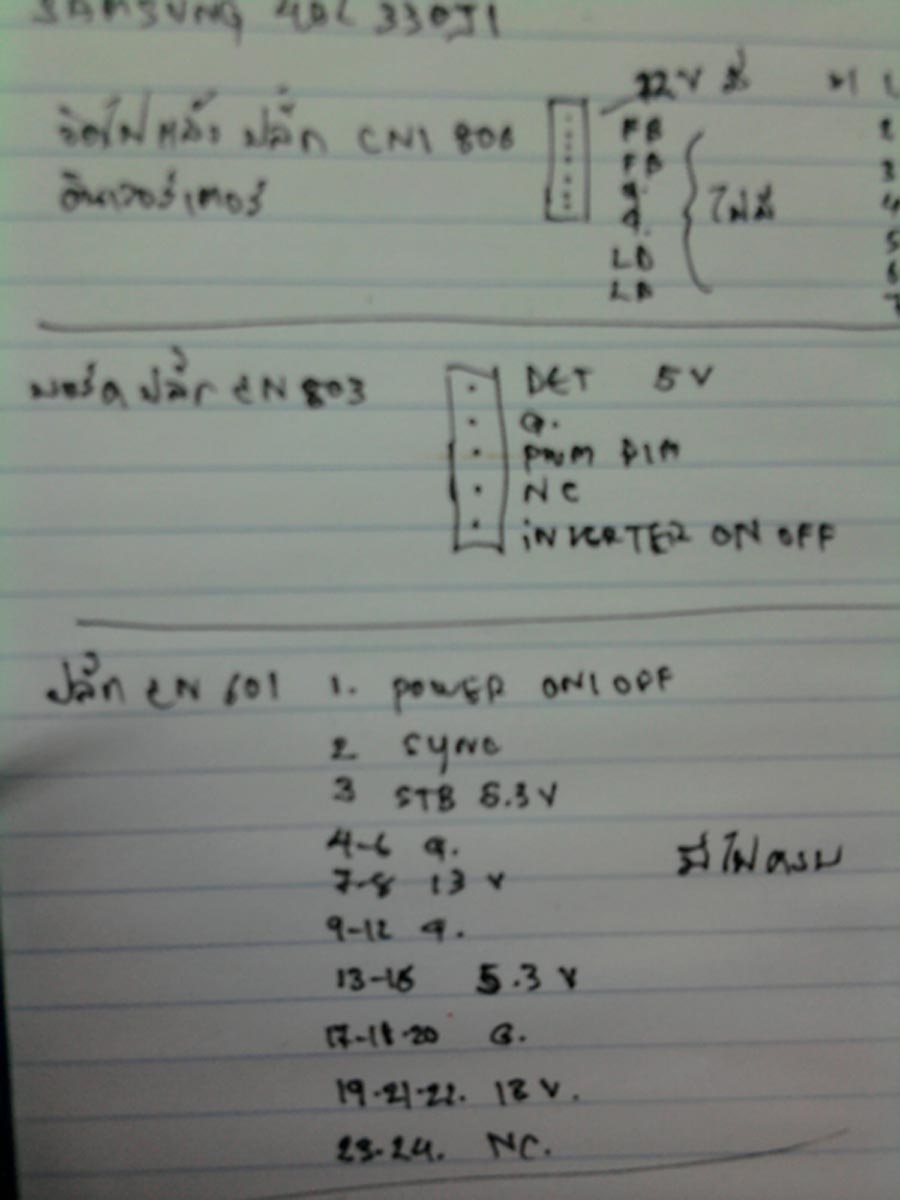 SAMSUNG
22V มี
วัดไฟแล้ว ปลั๊ก CN1 806
FB
FB
G.
G.
LD
ไม่มี
อินเวอร์เตอร์
2
3
4
5
6
7
ปลั๊ก CN 803
DET 5V
G.
PWM DIM
NC
INVERTER ON OFF
ปลั๊ก CN 601
1. POWER ON/OFF
2 SYNC
3 STB 5.3V
4-6 G.
7-8 13 V
มีไฟครบ
9-12 G.
13-16 5.3 V
17-18-20 G.
19-21-22. 12 V.
23-24. NC.